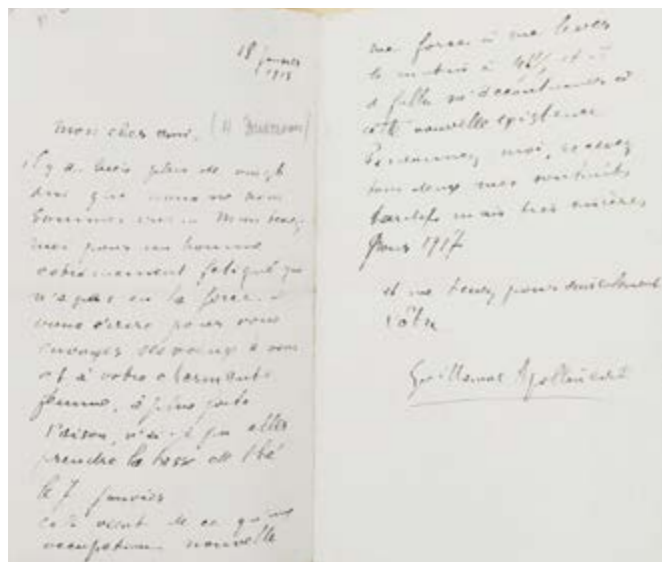 18 janvier
mon cher ami,
il y a bien plus de vingt
ans que nous ne nous
sommes vus
moi pour un homme
extrêmement fatigué qui
n'a pas eu la force de
vous écrire pour vous
envoyer ses vœux à vous
et à votre charmante
femme, à plus forte
raison, n'ai-je pu aller
prendre la tasse de thé
le 7 janvier
cela vient de ce qu'une
occupation nouvelle
me force à me lever
le matin à et
cette nouvelle existence
Pardonnez moi, recevez
tous deux mes souhaits
tardifs mais très sincères
pour 1917
et me tenez pour amicalement
vôtre
Guillaume Apollinaire